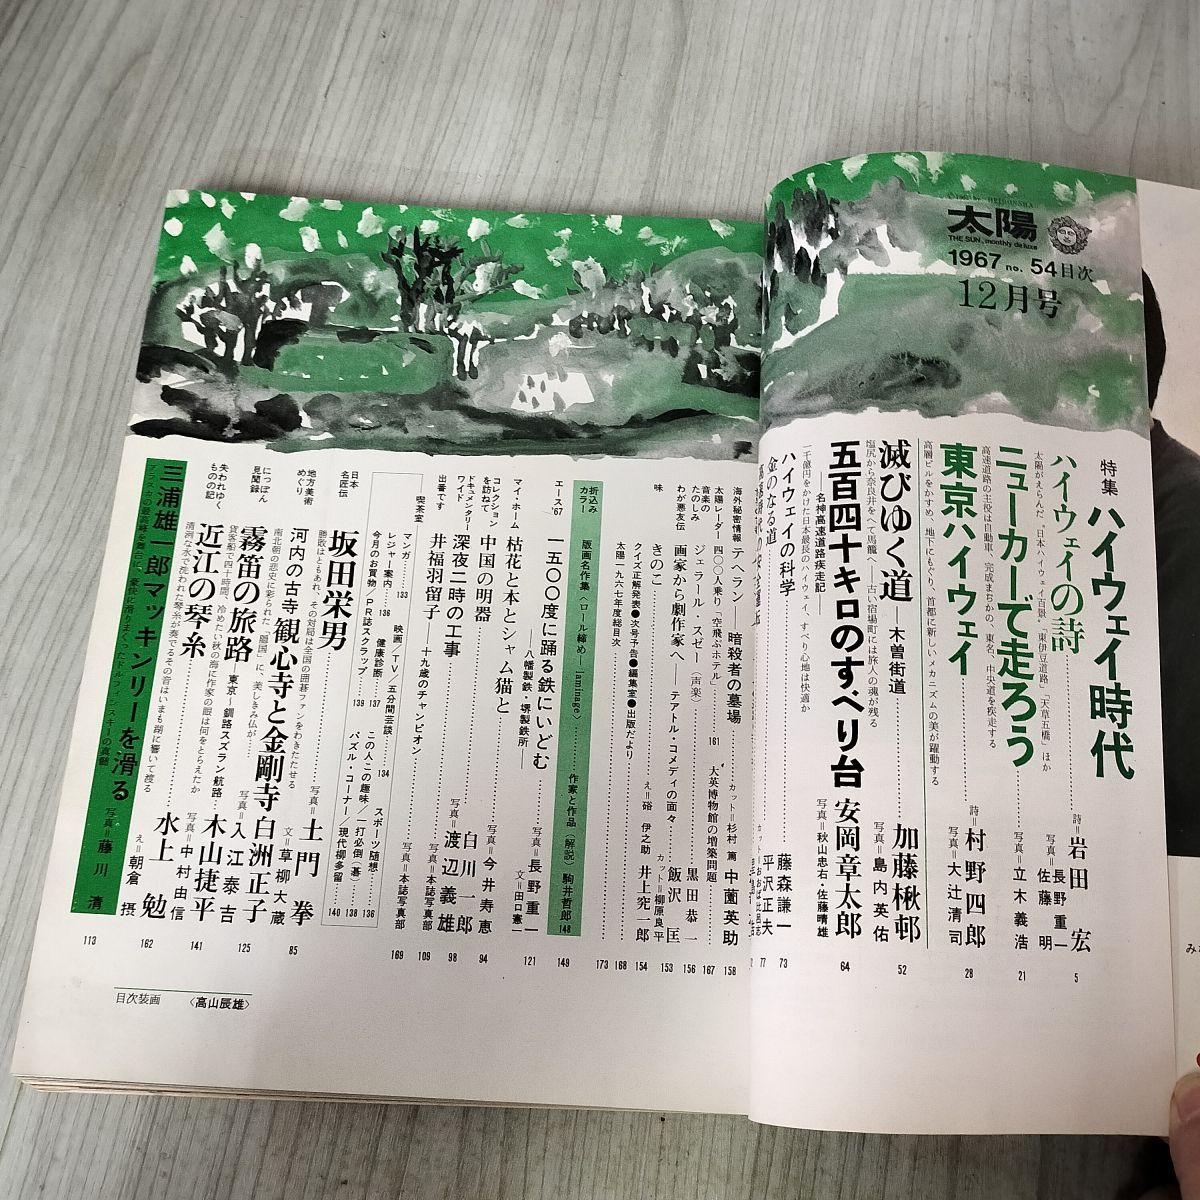 太陽
THE SUN, monthly de luxe
1967 no. 54 目次
12月号
特集 ハイウェイ時代
ハイウェイの詩
詩=岩田 宏
5
太陽がえらんだ、"日本ハイウェイ百景" "東伊豆道路" "天草五橋" ほか
写真=長野重一
佐藤 明
ニューカーで走ろう
写真=立木義浩
21
高速道路の主役は自動車、完成まぢかの、東名、中央道を疾走する
東京ハイウェイ
詩=村野四郎
写真=大辻清司
28
高層ビルをかすめ、地下にもぐり、首都に新しいメカニズムの美が躍動する
滅びゆく道―木曽街道
加藤楸邨
写真=島内英佑
52
塩尻から奈良井をへて馬籠へ――古い宿場町には旅人の魂が残る
五百四十キロのすべり台
安岡章太郎
写真=秋山忠右・佐藤晴雄
64
――名神高速道路疾走記――
一千億円をかけた日本最長のハイウェイ、すべり心地は快適か
ハイウェイの科学
藤森謙一
73
金のなる道
平沢正夫
77
海外秘密情報 テヘラン――暗殺者の墓場
カット=杉村 篤
中薗英助
158
太陽レーダー 四〇〇人乗り「空飛ぶホテル」
161
大英博物館の増築問題
167
音楽のたのしみ ジェラール・スゼー〈声楽〉
黒田恭一
156
わが悪友伝 画家から劇作家へ――テアトル・コメディの面々
飯沢 匡
カット=柳原良平
153
味 きのこ
え=硲 伊之助
井上究一郎
154
クイズ正解発表●次号予告●編集室●出版だより
168
太陽一九六七年度総目次
173
折込みカラー 版画名作集〈ロール締め―laminage〉
作家と作品(解説) 駒井哲郎
148
149
エース'67 一五〇〇度に踊る鉄にいどむ
――八幡製鉄・堺製鉄所――
写真=長野重一
文=田口憲一
121
マイ・ホーム 枯花と本とシャム猫と
写真=今井寿恵
94
コレクションを訪ねて 中国の明器
白川一郎
98
ドキュメンタリーワイド 深夜二時の工事
写真=渡辺義雄
109
出番です 井福羽留子 十九歳のチャンピオン
写真=本誌写真部
喫茶室
写真=本誌写真部
169
マンガ 133
映画/TV/五分間芸談 134
スポーツ随想 136
レジャー案内 136
健康診断 137
この人この趣味/一打必倒(碁) 138
今月のお買物/PR誌スクラップ 139
パズル・コーナー/現代柳多留 140
日本名匠伝 坂田栄男
写真=土門 拳
文=草柳大蔵
85
勝敗はともあれ、その対局は全国の囲碁ファンをわきたたせる
地方美術めぐり 河内の古寺 観心寺と金剛寺
白洲正子
写真=入江泰吉
125
南北朝の悲史に彩られた「廻国」に、美しきみ仏が……
にっぽん見聞録 霧笛の旅路 東京~釧路スズラン航路
木山捷平
写真=中村由信
141
貨客船で四十時間、冷めたい秋の海に作家の眼は何をとらえたか
失われゆくものの記 近江の琴糸
水上 勉
え=朝倉 摂
162
清冽な水で洗われた琴糸が奏でるその音はいまも湖に響いて渡る
三浦雄一郎マッキンリーを滑る
写真=藤川 清
113
目次装画 〈高山辰雄〉